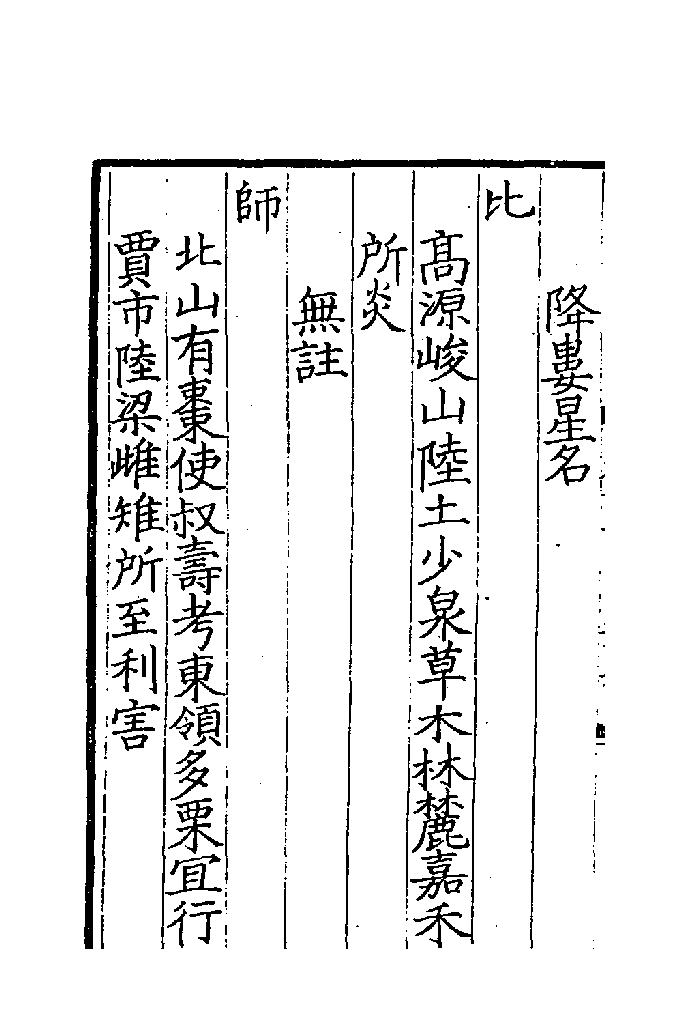 降婁星名
比
髙源峻山陸土少泉草木林麓嘉禾
所炎
無註
師
北山有棗使叔壽考東領多栗宜行
賈市陸梁雌雉所至利害